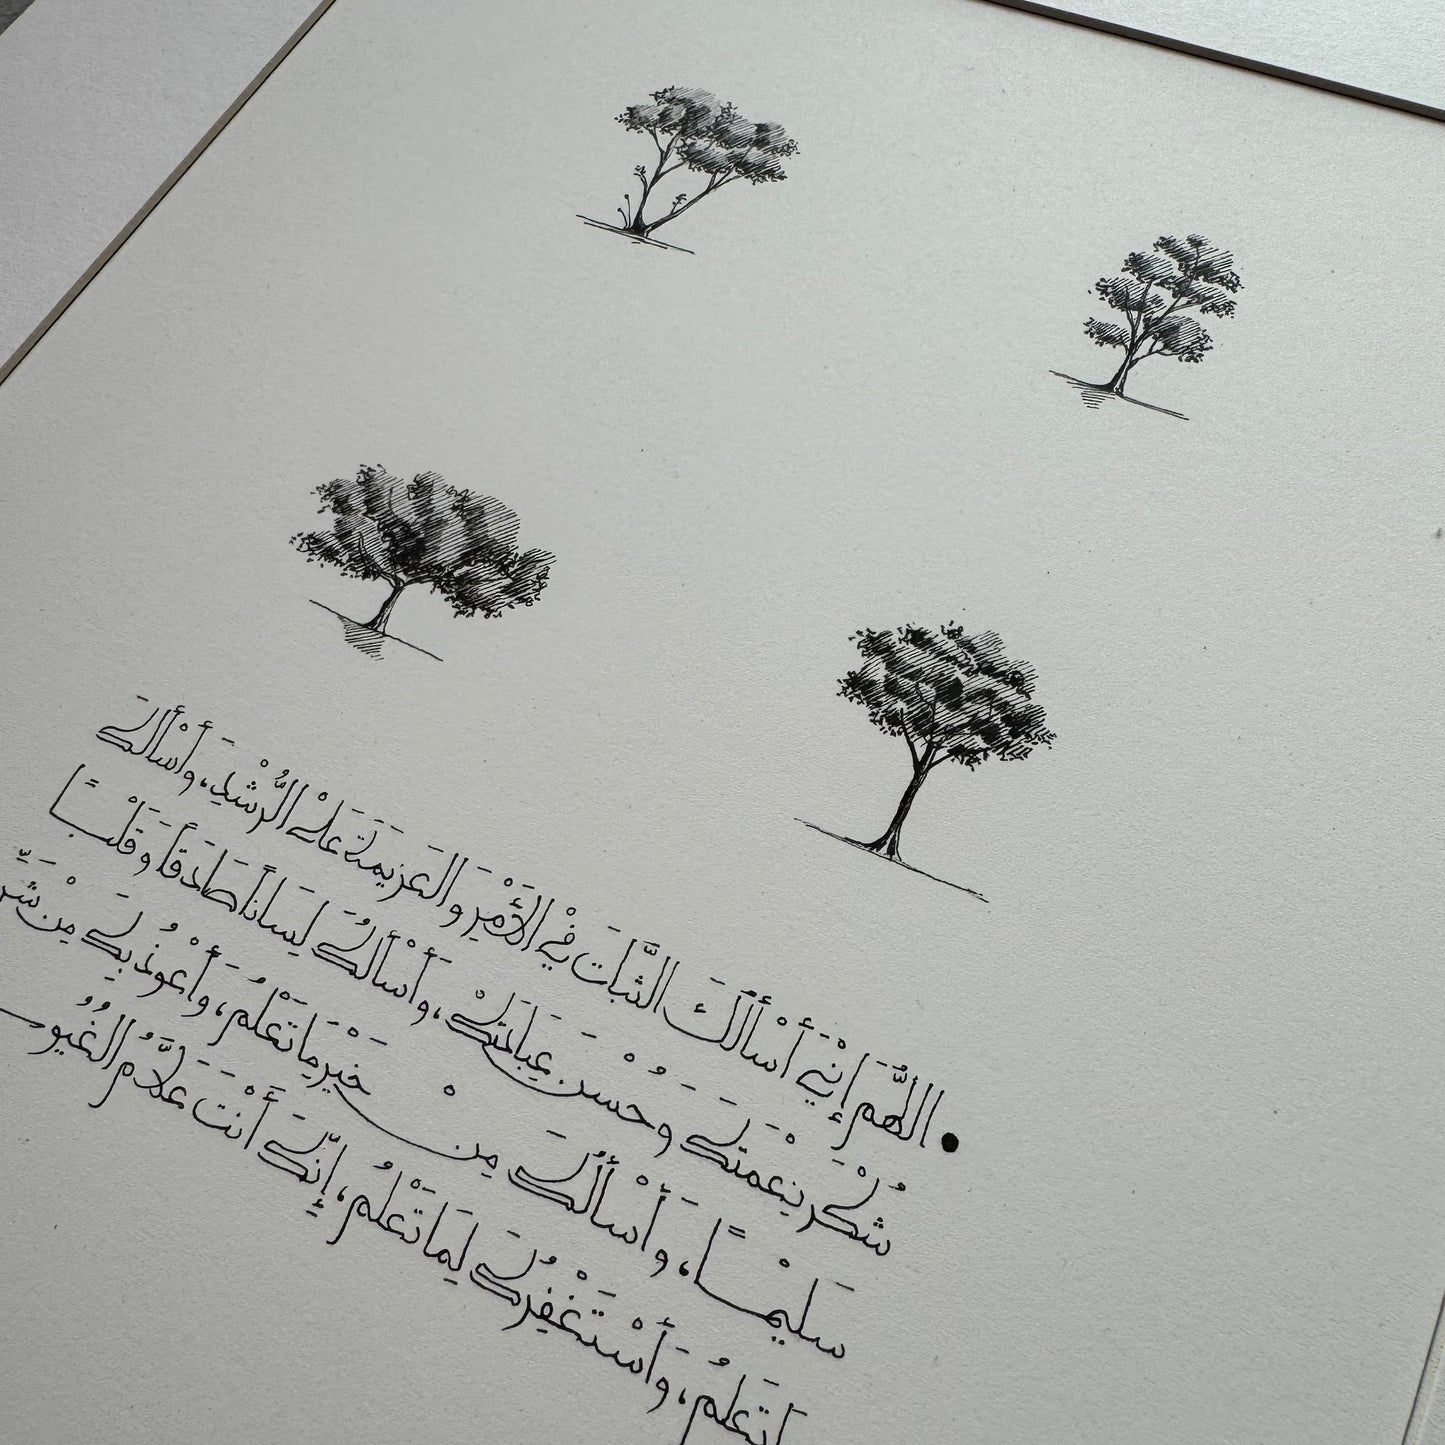 • اللَّهُمَّ إِنِّي أَسْأَلُكَ الثَّبَاتَ فِي الأَمْرِ وَالعَزِيمَةَ عَلَى الرُّشْدِ، وَأَسْأَلُكَ
شُكْرَ نِعْمَتِكَ وَحُسْنَ عِبَادَتِكَ، وَأَسْأَلُكَ لِسَانًا صَادِقًا وَقَلْبًا
سَلِيْمًا، وَأَسْأَلُكَ مِنْ خَيْرِ مَا تَعْلَمُ، وَأَعُوْذُ بِكَ مِنْ شَرِّ
تَعْلَمُ، وَأَسْتَغْفِرُكَ لِمَا تَعْلَمُ، إِنَّكَ أَنْتَ عَلَّامُ الغُيُوب